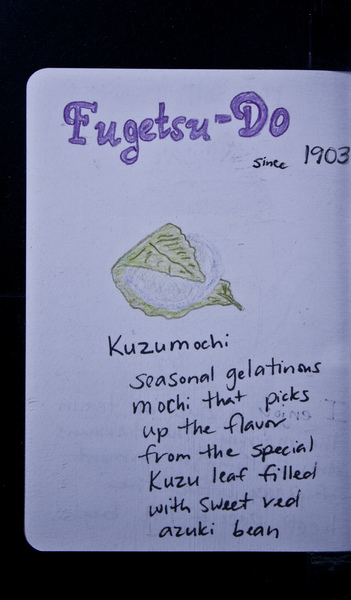 Fugetsu-Do
since 1903
Kuzumochi
seasonal gelatinous
mochi that picks
up the flavor
from the special
Kuzu leaf filled
with sweet red
azuki bean